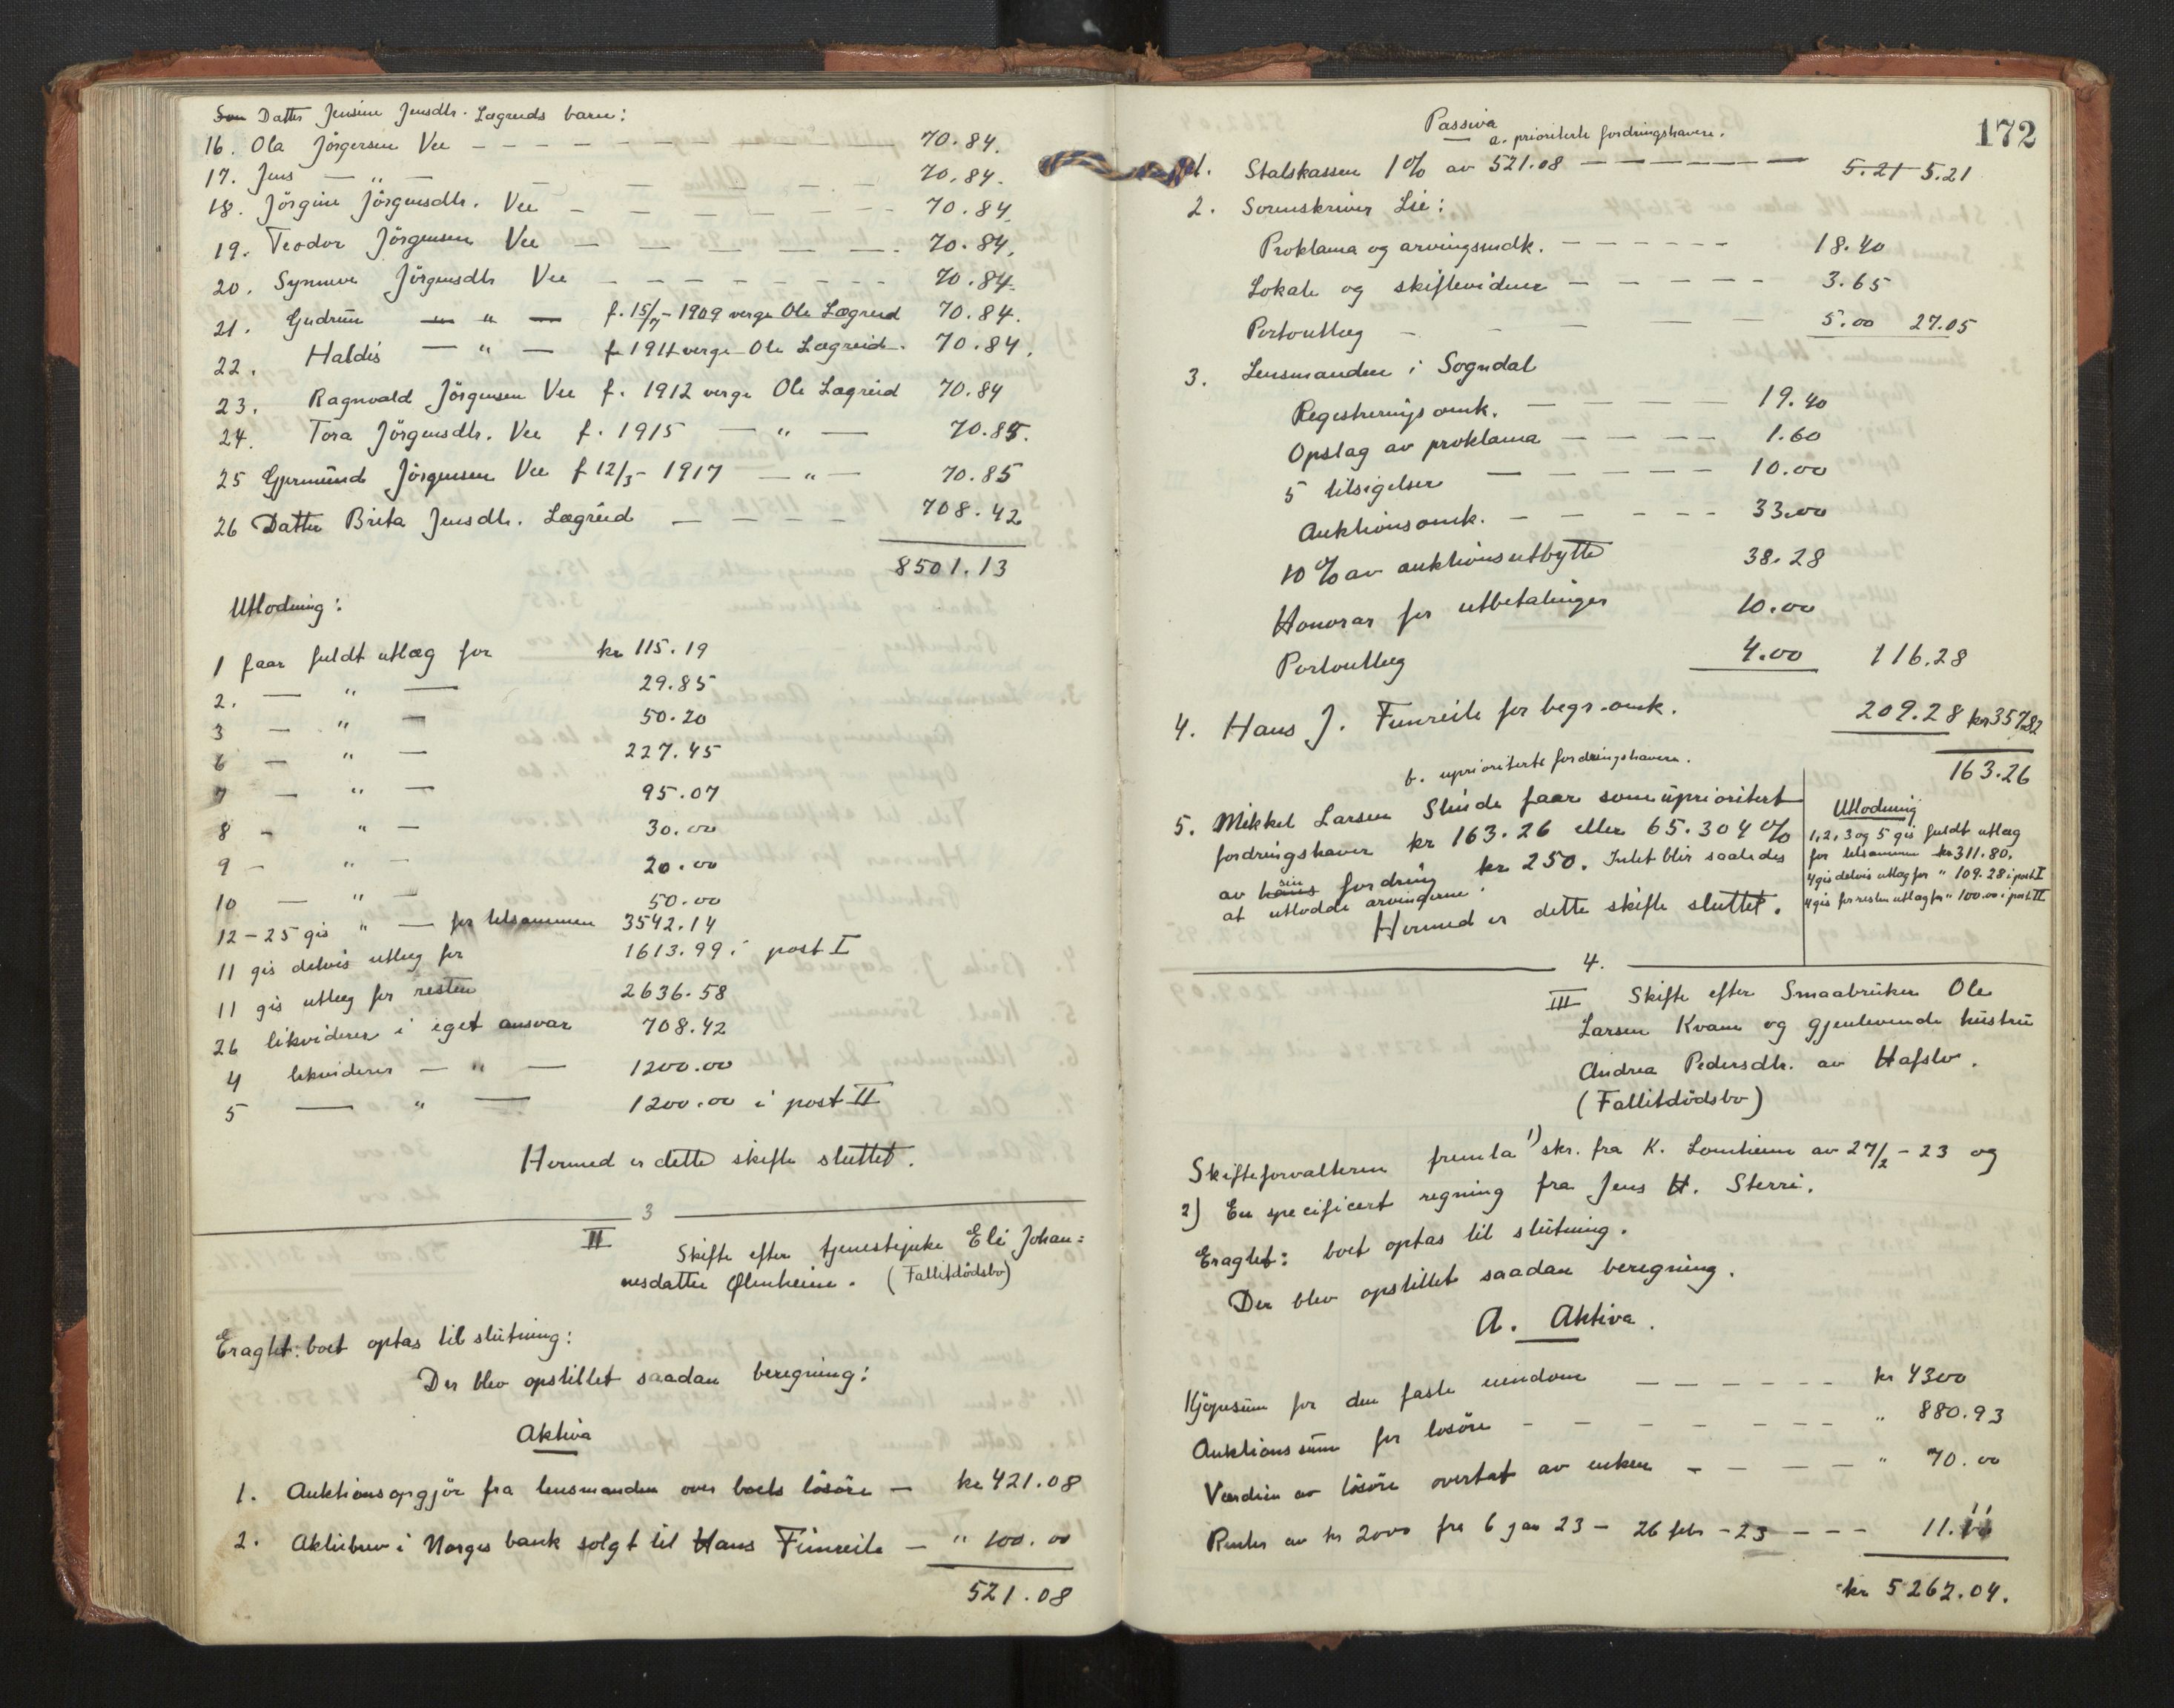 Datter Jensine Jensdtr. Lægreids barn:
16. Ola Jörgensen Vee — 70.84.
17. Jens — " — 70.84.
18. Jörgine Jörgensdtr. Vee — 70.84.
19. Teodor Jörgensen Vee — 70.84.
20. Synneve Jörgensdtr Vee — 70.84.
21. Gudrun — " — f. 15/7-1909 verge Ole Lægreid 70.84.
22. Haldis — " — f. 1911 verge Ole Lægreid. 70.84.
23. Ragnvald Jörgensen Vee f. 1912 verge Ole Lægreid 70.84
24. Tora Jörgensdtr. Vee f. 1915 — " — 70.85.
25 Gjermund Jörgensen Vee f 12/3-1917 — " — 70.85
26 Datter Brita Jensdtr. Lægreid — 708.42
8501.13
Utlodning:
1 faar fuldt utlæg for kr 115.19
2. — " — 29.85
3 — " — 50.20
6 — " — 227.45
7 — " — 95.07
8 - " — 30.00
9 — " — 20.00
10 — " — 50.00
12-25 gis " — for tilsammen 3542.14
11 gis delvis utlæg for 1613.99 i post I
11 gis utlæg for resten 2636.58
26 likviderer i eget ansvar 708.42
4 likviderer — " — 1200.00
5 — " — 1200.00 i post II
Hermed er dette skifte sluttet.
3
II Skifte efter tjenestepike Eli Johan=
nesdatter Ølmheim. (Fallitdödsbo)
Eragtet: boet optas til slutning:
Der blev opstillet saadan beregning:
Aktiva
1. Auktionsopgjör fra lensmanden over boets lösöre — kr 421.08
2. Aktiebrev i Norges bank solgt til Hans Fimreite — " 100.00
521.08
172
Passiva
a. prioriterte fordringshavere.
1. Statskassen 1% av 521.08 — 5.21 5.21
2. Sorenskriver Lie:
Proklama og arvingsindk. — 18.40
Lokale og skiftevidner — 3.65
Portoutlæg — 5.00 27.05
3. Lensmanden i Sogndal
Registrerings omk. — 19.40
Opslag av proklama — 1.60
5 tilsigelser — 10.00
Auktionsomk. — 33.00
10% av auktionsutbytte 38.28
Honorar for utbetalinger 10.00
Portoutlæg 4.00 116.28
4. Hans J. Fimreite for begr.omk. 209.28 kr 357.82
163.26
b. uprioriterte fordringshavere.
5. Mikkel Larsen Slinde faar som uprioritert
fordringshaver kr 163.26 eller 65.304%
av hans sin fordring kr 250. Intet blir saaledes
at utlodde arvingerne.
Hermed er dette skifte sluttet.
Utlodning
1, 2, 3 og 5 gis fuldt utlæg
for tilsammen kr 311.80.
4 gis delvis utlæg for " 109.28 i post I
4 gis for resten utlæg for " 100.00 i post II
4.
III Skifte efter Smaabruker Ole
Larsen Kvam og gjenlevende hustru
Andrea Pedersdtr. av Hafslo.
(Fallitdödsbo)
Skifteforvalteren fremla 1) skr. fra K. Lomheim av 27/2-23 og
2) En specificert regning fra Jens H. Sterri.
Eragtet: boet optas til slutning.
Der blev opstillet saadan beregning.
A. Aktiva.
Kjøpesum for den faste eiendom — kr 4300
Auktionssum for lösöre — " 880.93
Værdien av lösöre overtat av enken — " 70.00
Renter av kr 2000 fra 6 jan 23 - 26 febr - 23 — 11.11
kr 5262.04.